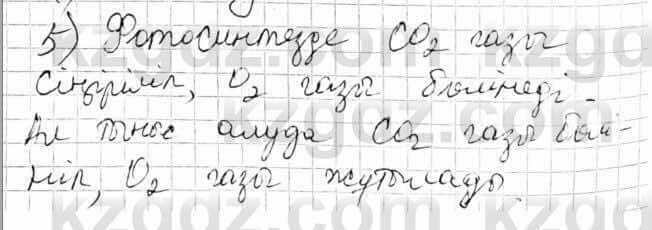 5) Фотосинтезде CO2 газы
сіңіріліп, O2 газы бөлінеді.
Ал тыныс алуда CO2 газы бөлі-
ніп, O2 газы жұтылады.
kzgdz.com